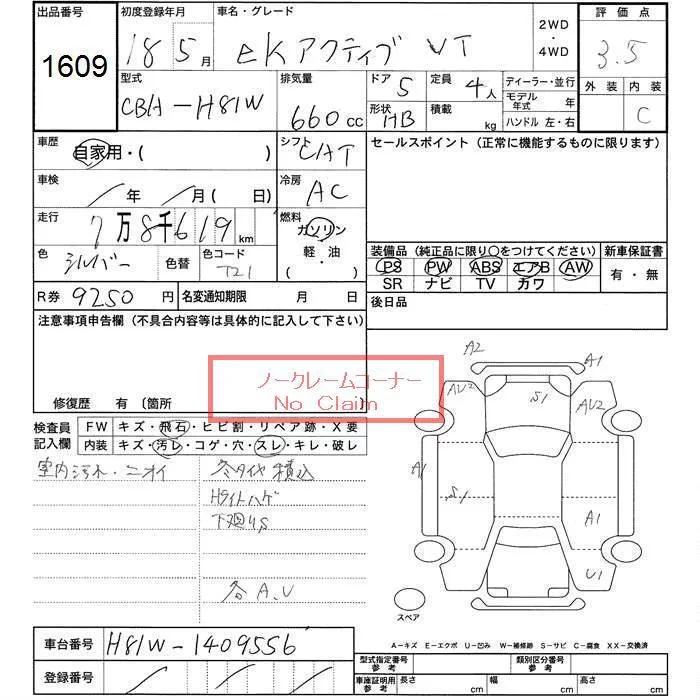 出品番号 初度登録年月 車名・グレード 2WD・4WD 評価点
1609 18 5月 eKアクティブ VT 3.5
型式 排気量 ドア 5 定員 4人 ディーラー・並行 外装 内装
CBA-H81W 660cc 形状 HB 積載 kg モデル年式 年 C
ハンドル 左・右
車歴 自家用・( ) シフト CAT セールスポイント(正常に機能するものに限ります)
車検 / 年 / 月( 日) 冷房 AC
走行 7万8千619km 燃料 ガソリン
軽・油
( ・ )
色 シルバー 色替 色コード T21
装備品(純正品に限り○をつけてください) 新車保証書
PS PW ABS エアB AW 有・無
SR ナビ TV カワ
R券 9250円 名変通知期限 月 日 後日品
注意事項申告欄(不具合内容等は具体的に記入して下さい)
ノークレームコーナー
No Claim
修復歴 有〔箇所
検査員記入欄 FW キズ・飛石・ヒビ割・リペア跡・X要
内装 キズ・汚レ・コゲ・穴・スレ・キレ・破レ
室内汚れ・ニオイ
Hライトハゲ
各A.U
A2
A1
AU2
S1
AU2
A1
S1
A1
U1
スペア
A-キズ E-エクボ U-凹み W-補修跡 S-サビ C-腐食 XX-交換済
車台番号 H81W-1409556
登録番号
型式指定番号参考 類別区分番号参考
車庫証明用参考 長さ cm 幅 cm 高さ cm